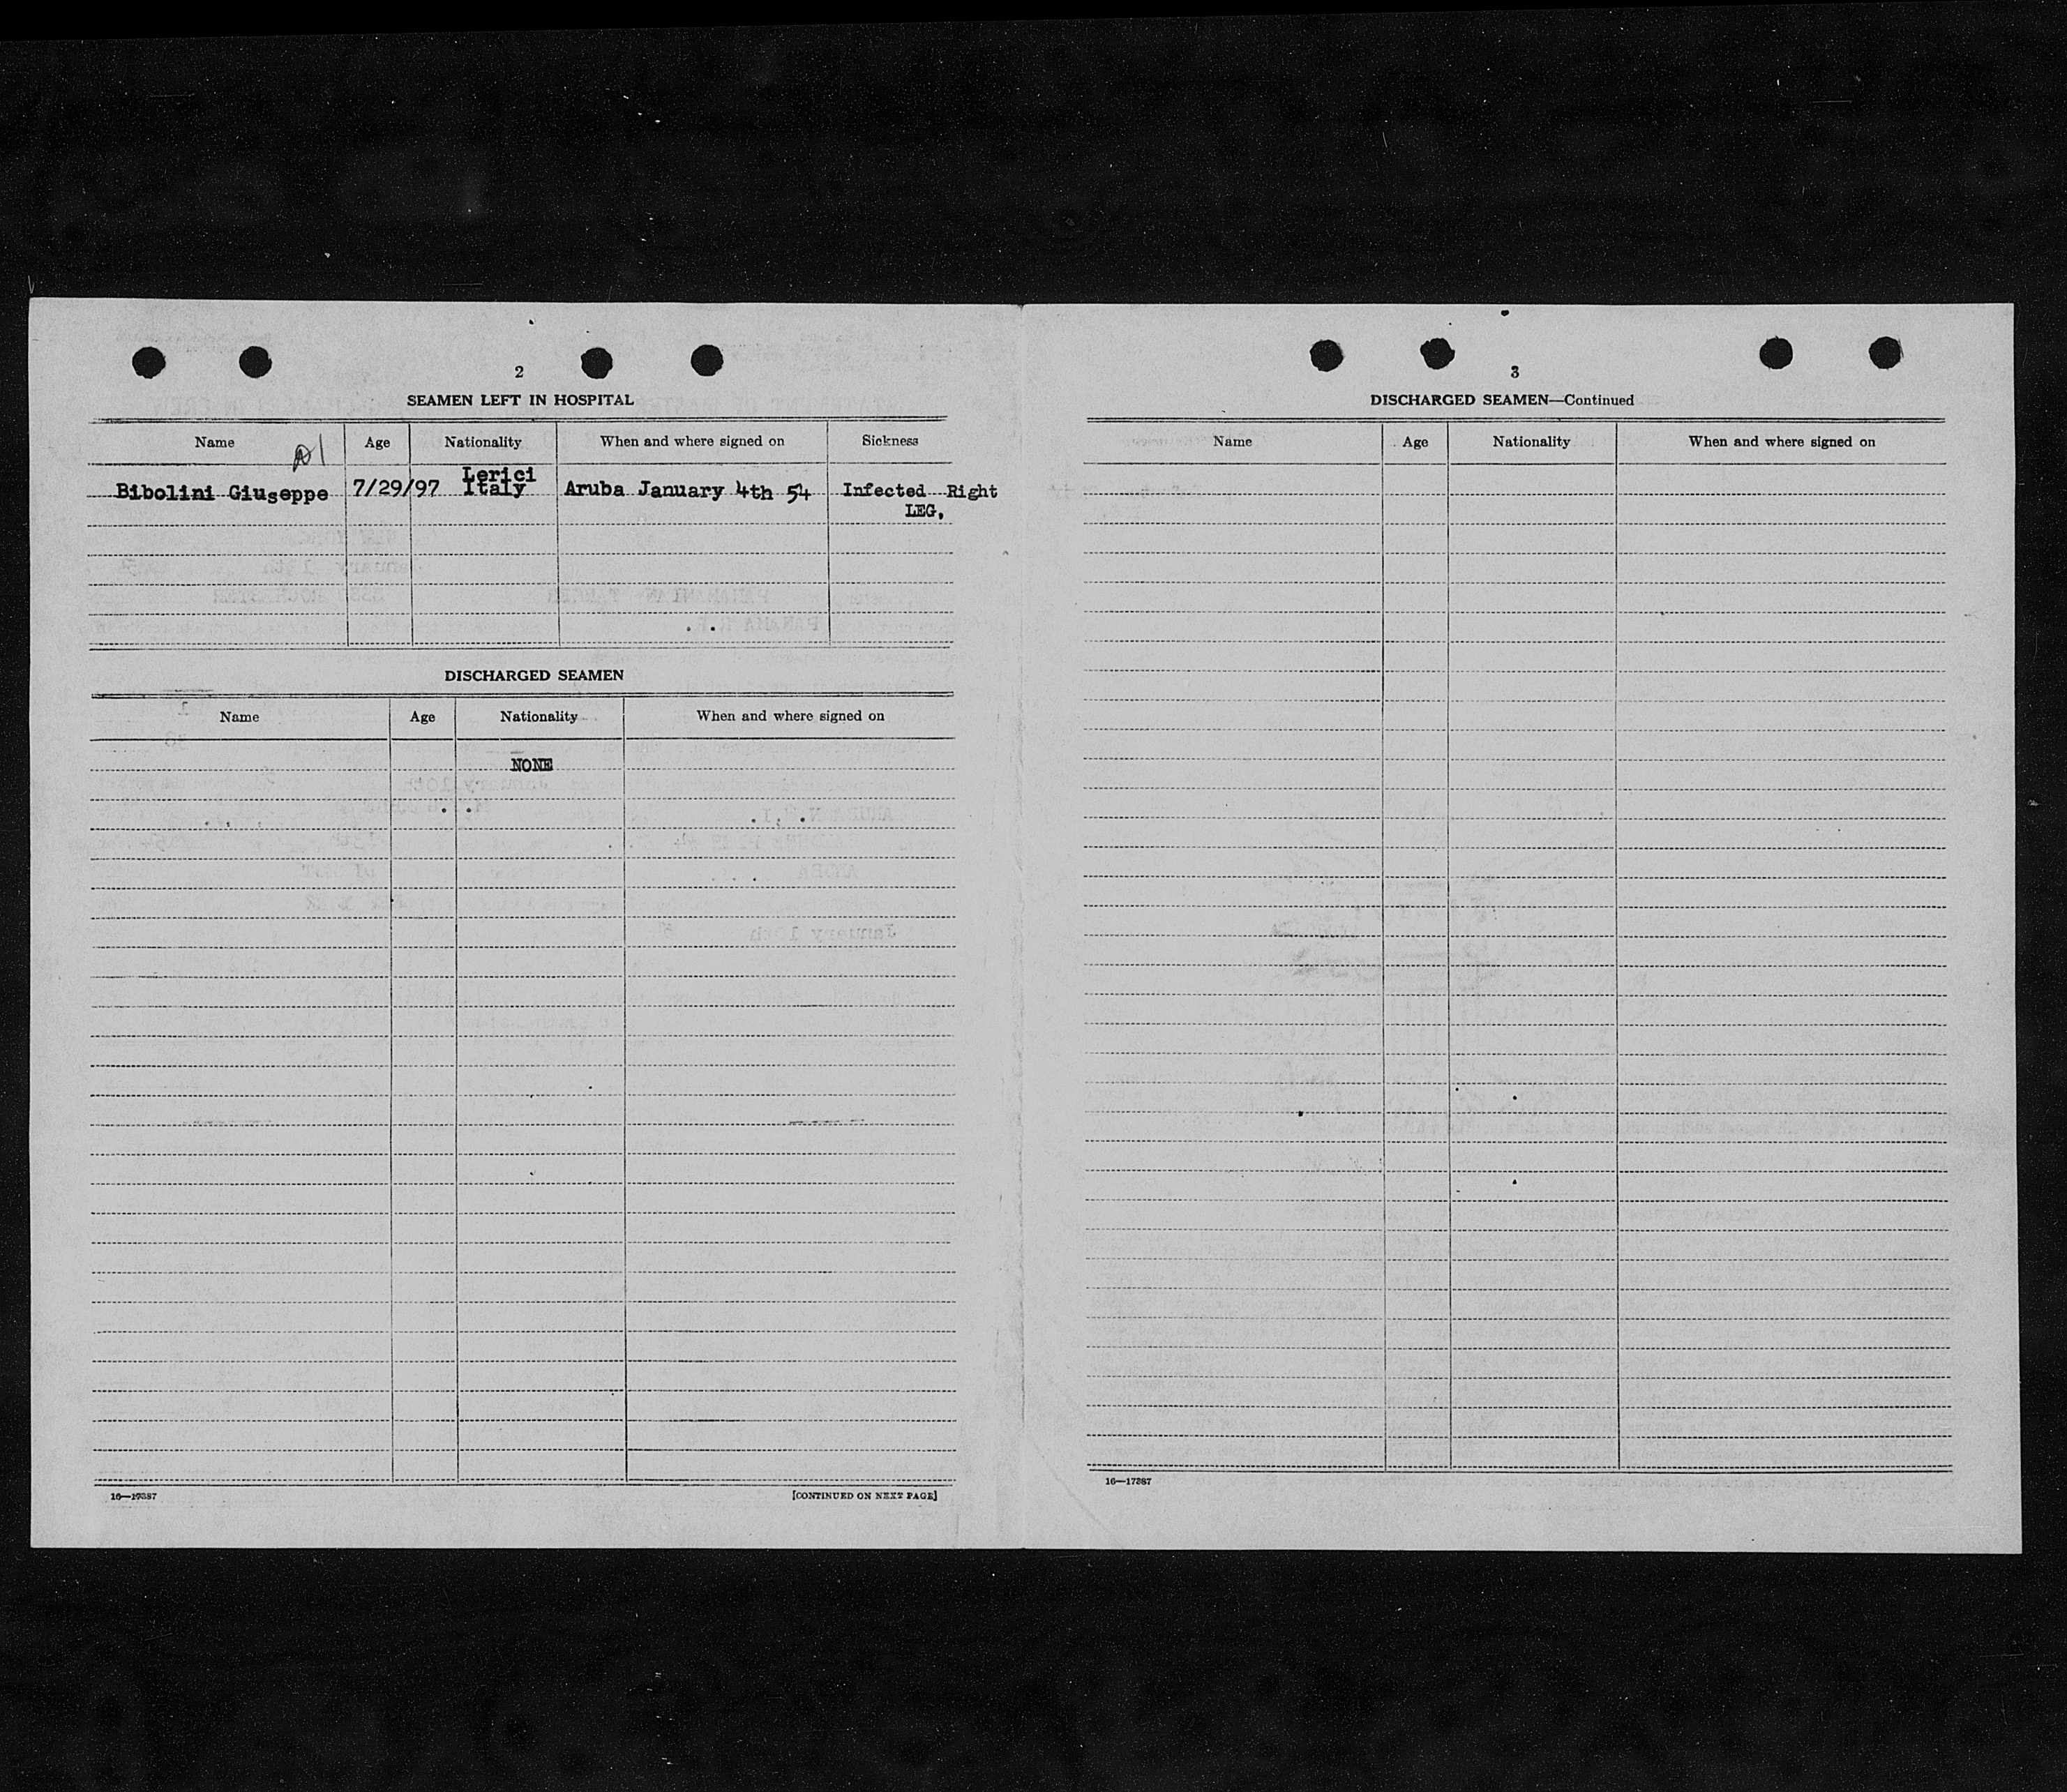 2
SEAMEN LEFT IN HOSPITAL
Name Age Nationality When and where signed on Sickness
Bibolini Giuseppe 7/29/97 Lerici Italy Aruba January 4th 54 Infected Right LEG,
DISCHARGED SEAMEN
Name Age Nationality When and where signed on
NONE
16—17387
[CONTINUED ON NEXT PAGE]
3
DISCHARGED SEAMEN—Continued
Name Age Nationality When and where signed on
16—17387